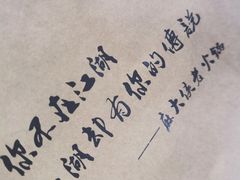 你不在江湖
江湖却有你的传说
——麻大侠老火锅